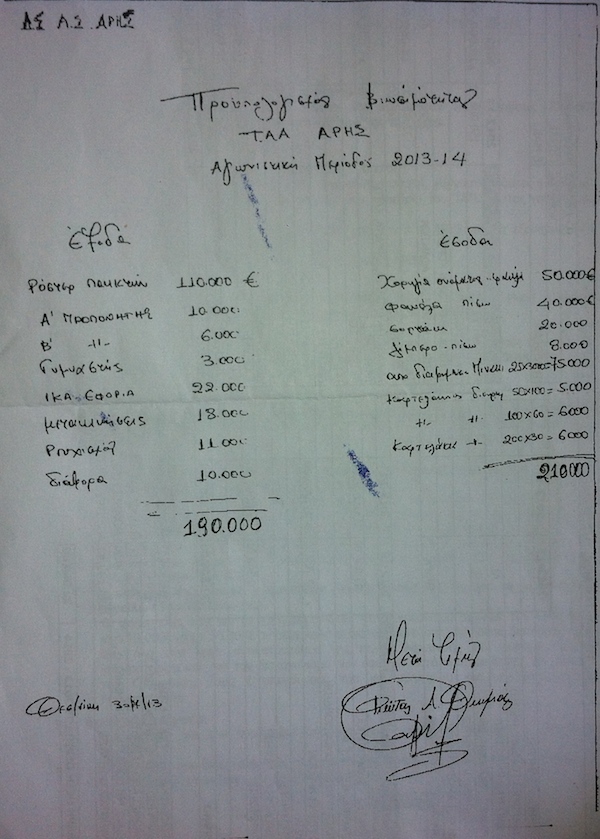 ΔΣ Α.Σ ΑΡΗΣ
Προϋπολογισμός Βιωσιμότητας
ΤΑΑ ΑΡΗΣ
Αγωνιστική Περίοδος 2013-14
Έξοδα
Ρόστερ Παικτών 110.000 €
Α' ΠΡΟΠΟΝΗΤΗΣ 10.000
Β' -11- 6.000
Γυμναστής 3.000
ΙΚΑ-ΕΦΟΡΙΑ 22.000
μετακινήσεις 18.000
Ρουχισμός 11.000
διάφορα 10.000
190.000
έσοδα
Χορηγία ονόματος - φανέλα 50.000€
Φανέλα πίσω 40.000€
σορτσάκι 20.000
πίσω 8.000
από 25x3000=75.000
Καρτελάκια 50x100=5.000
-11- -11- 100x60=6000
Καρτελάκια -11- 200x30=6000
210000
Μετά Τιμής
Θεσ/νίκη